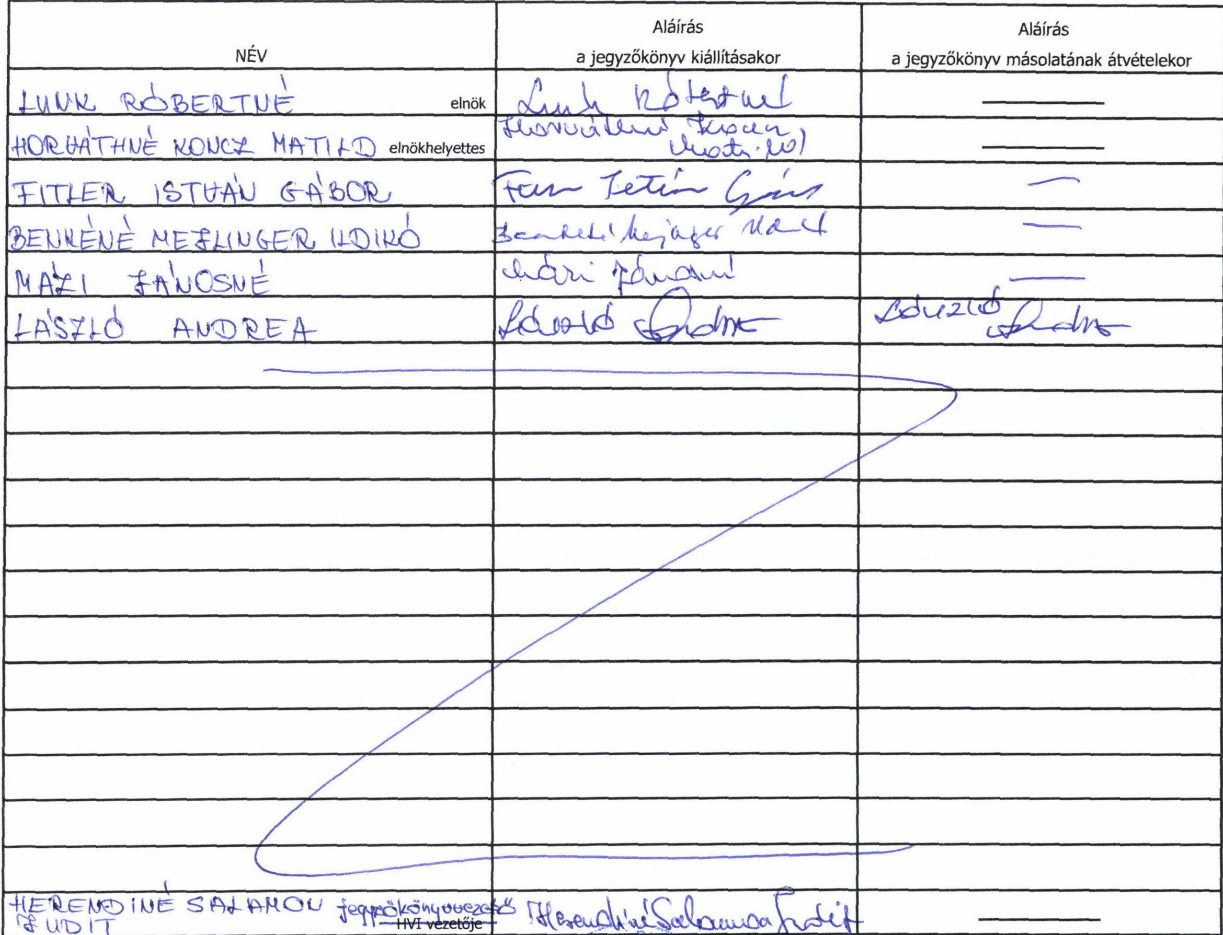 NÉV
Aláírás
a jegyzőkönyv kiállításakor
Aláírás
a jegyzőkönyv másolatának átvételekor
LUNK RÓBERTNÉ elnök Lunk Róbertné
HORVÁTHNÉ KONCZ MATILD elnökhelyettes Horváthné Koncz
Matild
FITLER ISTVÁN GÁBOR
BENKÉNÉ MEZLINGER ILDIKÓ
MÁZI JÁNOSNÉ Mázi Jánosné
LÁSZLÓ ANDREA László Andrea László Andrea
HERENDINÉ SALAMON jegyzőkönyvvezető Herendiné Salamon Judit
JUDIT HVI vezetője